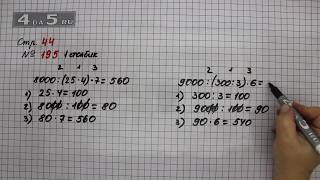 4 ДА 5.RU
Стр. 44
№ 195 1 столбик
2 1 3
8000:(25·4)·7=560
1) 25·4=100
2) 8000:100=80
3) 80·7=560
2 1 3
9000:(300:3)·6=
1) 300:3=100
2) 9000:100=90
3) 90·6=540